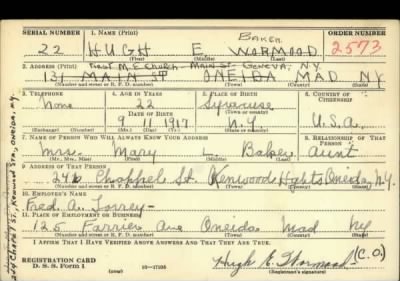 SERIAL NUMBER 1. NAME (Print) ORDER NUMBER
BAKER
22 HUGH E. WORMOOD 2573
(First) (Middle) (Last)
First M.E. Church - Main St. Geneva, NY.
2. ADDRESS (Print)
131 MAIN ST ONEIDA MAD NY
(Number and street or R. F. D. number) (Town) (County) (State)
3. TELEPHONE 4. AGE IN YEARS 5. PLACE OF BIRTH 6. COUNTRY OF CITIZENSHIP
None 22 Syracuse
(Town or county)
DATE OF BIRTH
9 11 1917 N.Y. U.S.A.
(Exchange) (Number) (Mo.) (Day) (Yr.) (State or country)
7. NAME OF PERSON WHO WILL ALWAYS KNOW YOUR ADDRESS 8. RELATIONSHIP OF THAT PERSON
Mrs. Mary L. Baker Aunt
(Mr., Mrs., Miss) (First) (Middle) (Last)
9. ADDRESS OF THAT PERSON
246 Chappel St. Kenwood Hghts Oneida, N.Y.
(Number and street or R. F. D. number) (Town) (County) (State)
10. EMPLOYER'S NAME
Fred A. Torrey
11. PLACE OF EMPLOYMENT OR BUSINESS
125 Farrier Ave Oneida Mad NY
(Number and street or R. F. D. number) (Town) (County) (State)
I AFFIRM THAT I HAVE VERIFIED ABOVE ANSWERS AND THAT THEY ARE TRUE.
REGISTRATION CARD
D. S. S. Form 1 16—17105 Hugh E. Wormood (C.O.)
(Registrant's signature)